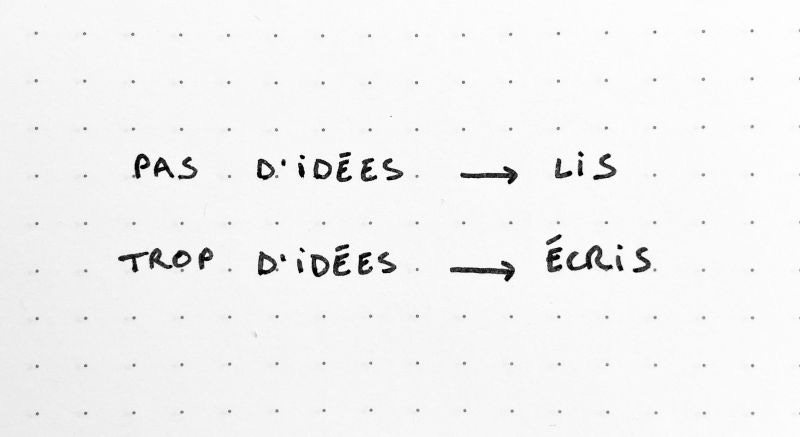 PAS D'iDÉES → LiS
TROP D'iDÉES → ÉCRiS